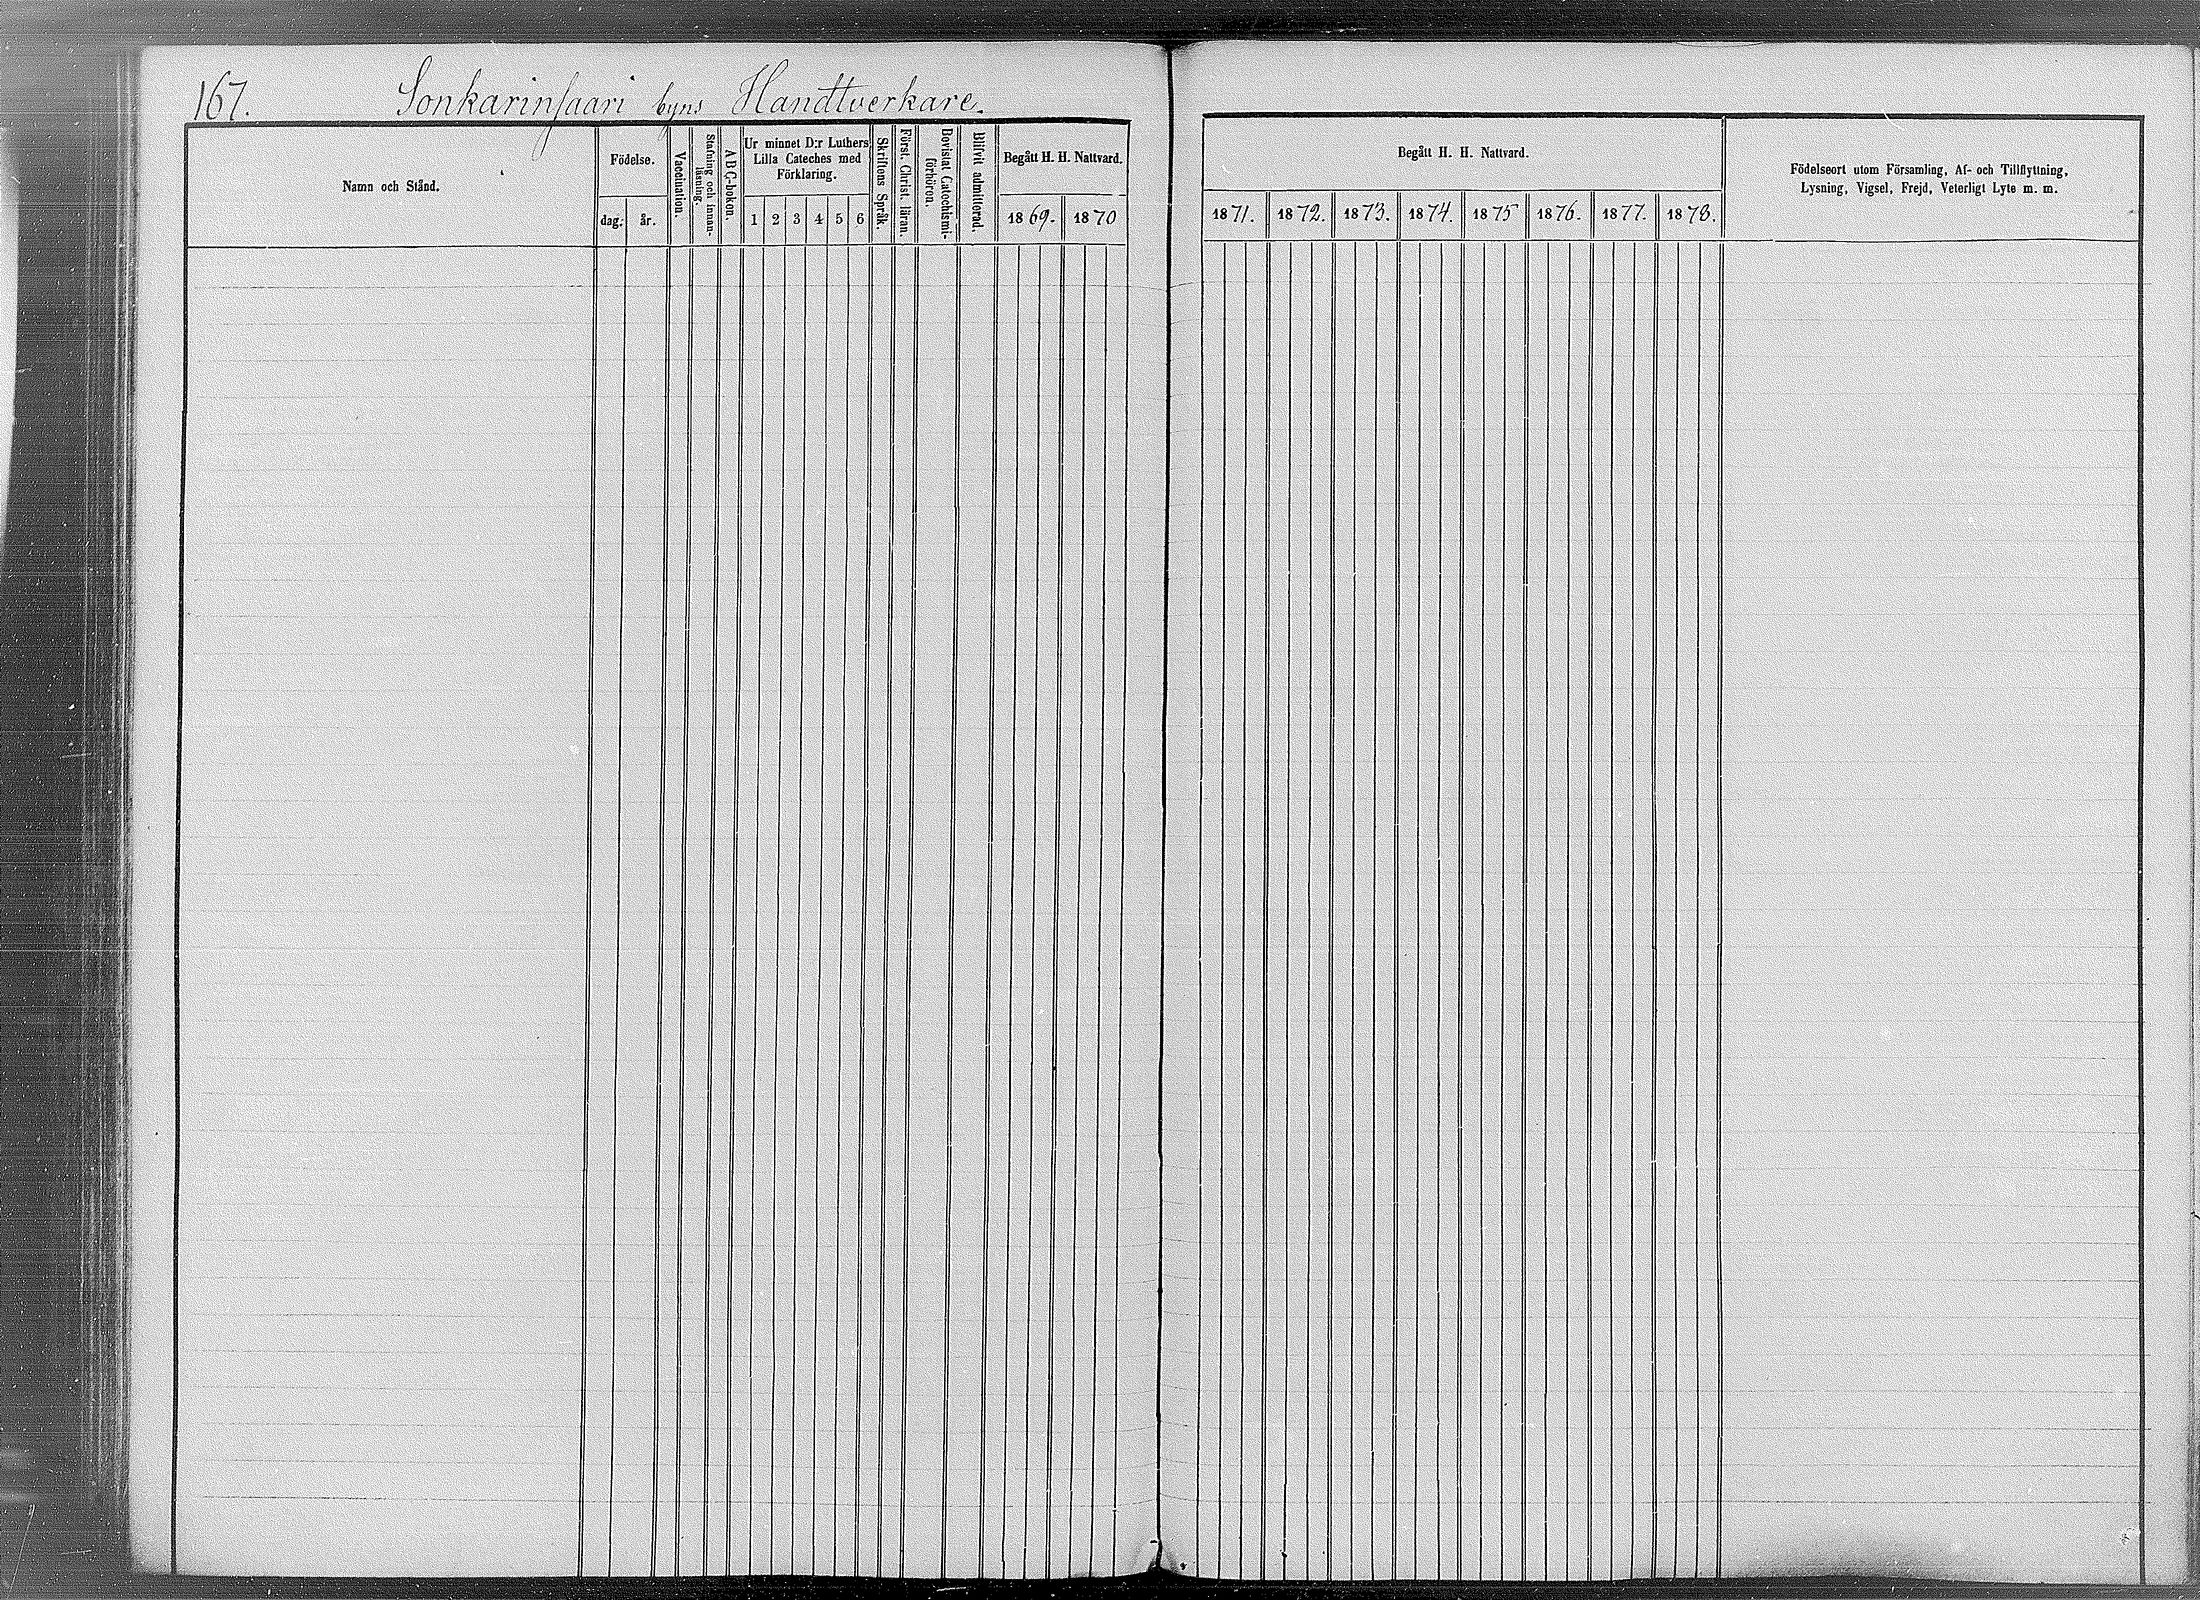 167. Sonkarinsaari byns Handtverkare.
Namn och Stånd.
Födelse.
dag.
år.
Vaccination.
Stafning och innan-
läsning.
A B C-boken.
Ur minnet D:r Luthers
Lilla Cateches med
Förklaring.
1 2 3 4 5 6
Skriftens Språk.
Först. Christ. läran.
Bevistat Catechismi-
förhören.
Blifvit admitterad.
Begått H. H. Nattvard.
1869. 1870
Begått H. H. Nattvard.
1871. 1872. 1873. 1874. 1875 1876. 1877. 1878.
Födelseort utom Församling, Af- och Tillflyttning,
Lysning, Vigsel, Frejd, Veterligt Lyte m. m.